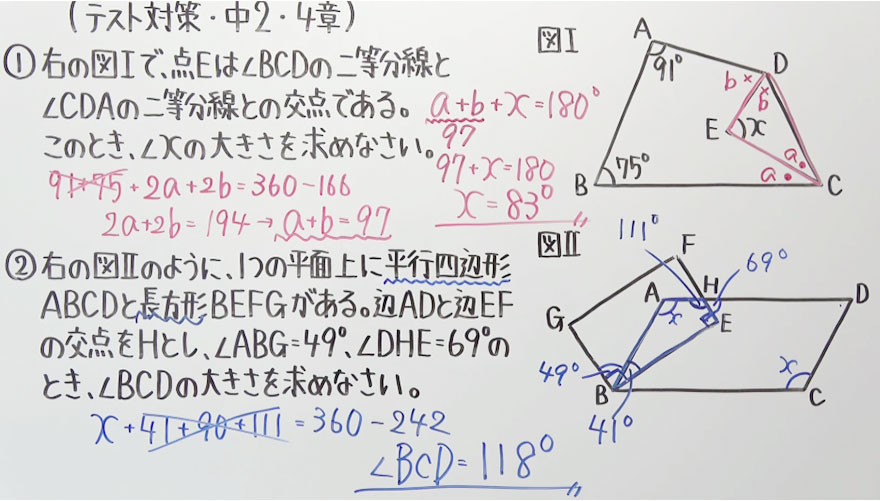 (テスト対策・中2・4章)
①右の図Iで、点Eは∠BCDの二等分線と
∠CDAの二等分線との交点である。
このとき、∠xの大きさを求めなさい。
91+75+2a+2b=360-166
2a+2b=194→a+b=97
a+b+x=180°
97
97+x=180
x=83°
図I
A
91°
D
b
b
E
x
a
a
B
75°
C
②右の図IIのように、1つの平面上に平行四辺形
ABCDと長方形BEFGがある。辺ADと辺EF
の交点をHとし、∠ABG=49°、∠DHE=69°の
とき、∠BCDの大きさを求めなさい。
x+41+90+111=360-242
∠BCD=118°
図II
111°
F
69°
A
H
D
x
G
E
49°
x
B
C
41°